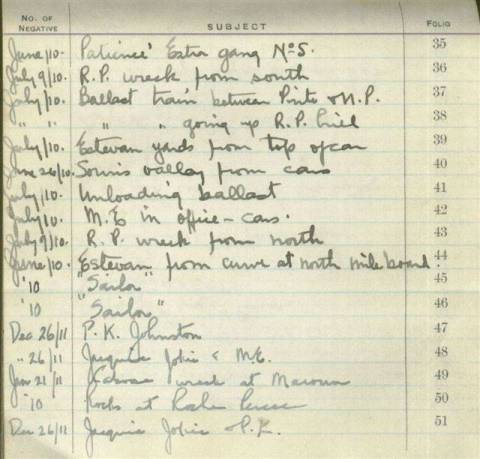 No. OF NEGATIVE SUBJECT FOLIO
June/10. Patience' Extra gang No 5. 35
July 9/10. R.P. wreck from south 36
July/10. Ballast train between Pinto & N.P. 37
" " " " going up R.P. hill 38
July/10. Estevan yards from top of car 39
June 26/10. Souris valley from cars 40
July/10. Unloading ballast 41
July/10. M.E in office-cars. 42
July 9/10. R.P. wreck from north 43
June/10. Estevan from curve at north mile board. 44
'10 "Sailor" 45
'10 "Sailor" 46
Dec 26/11 P.K. Johnston 47
" 26/11 Jacquie & M.E. 48
Jan 21/11 wreck at 49
'10 Rocks at Roche Percee 50
Dec 26/11 Jacquie & P.K. 51